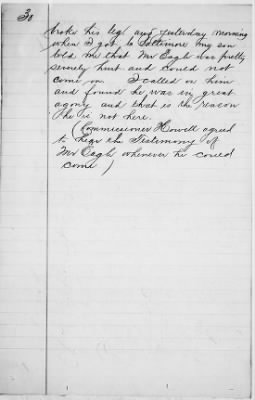 30
broke his leg and yesterday morning
when I got to Baltimore my son
told me that Mr Eagle was pretty
severely hurt and could not
come on. I called on him
and found he was in great
agony and that is the reason
he is not here.
(Commissioner Howell agreed
to hear the Testimony of
Mr Eagle whenever he could
come)